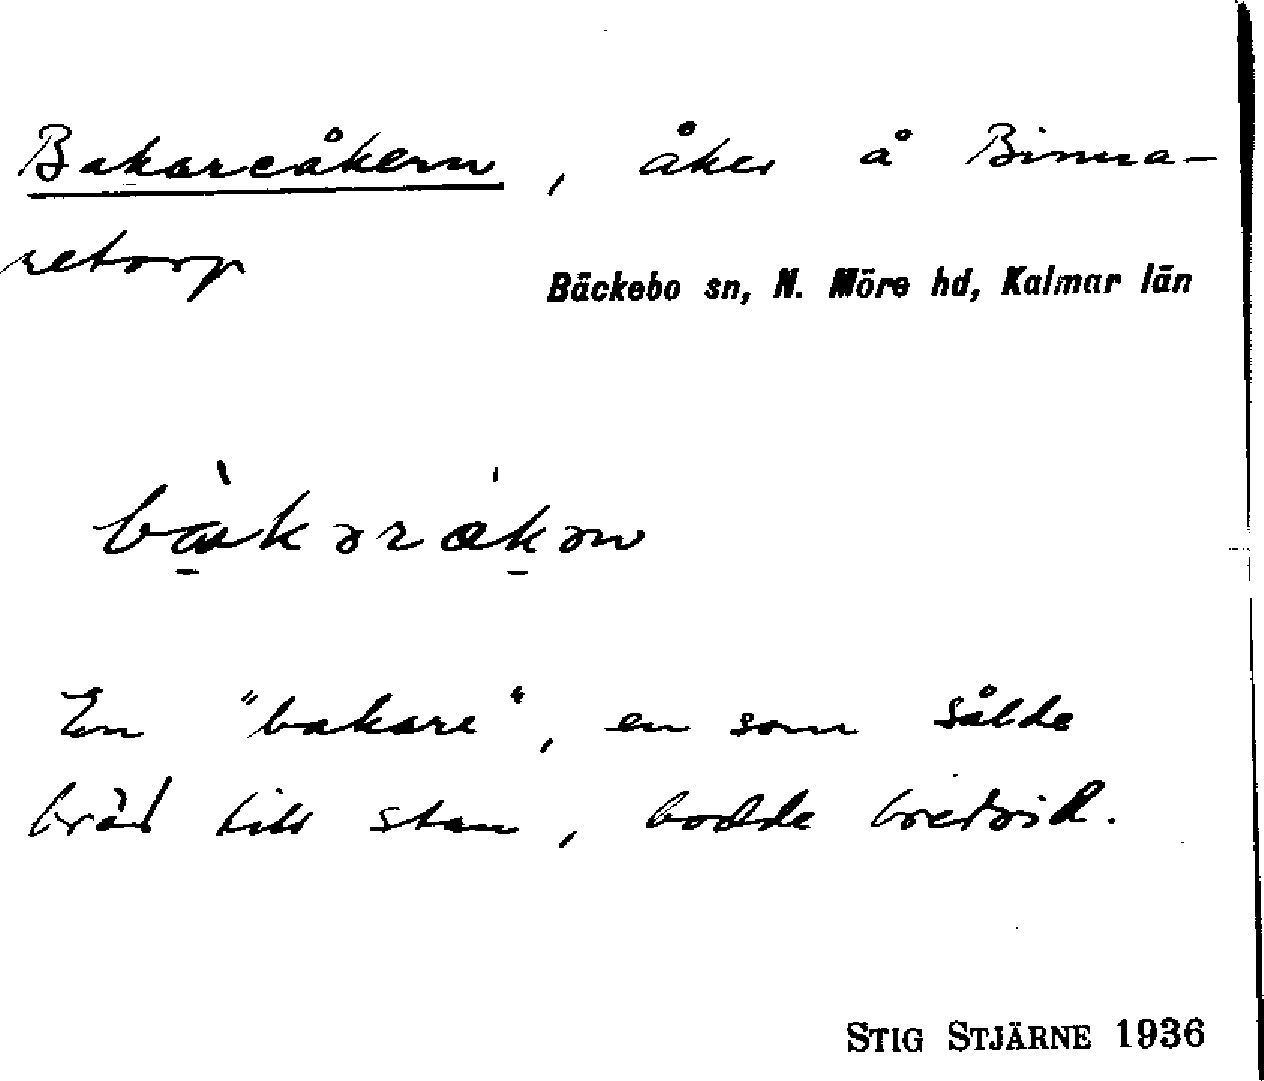 Bakareåkern, åker å Binna-
retorp
Bäckebo sn, N. Möre hd, Kalmar län
bàkəråkən
En "bakare", en som sålde
bröd till stan, bodde bredvid.
STIG STJÄRNE 1936